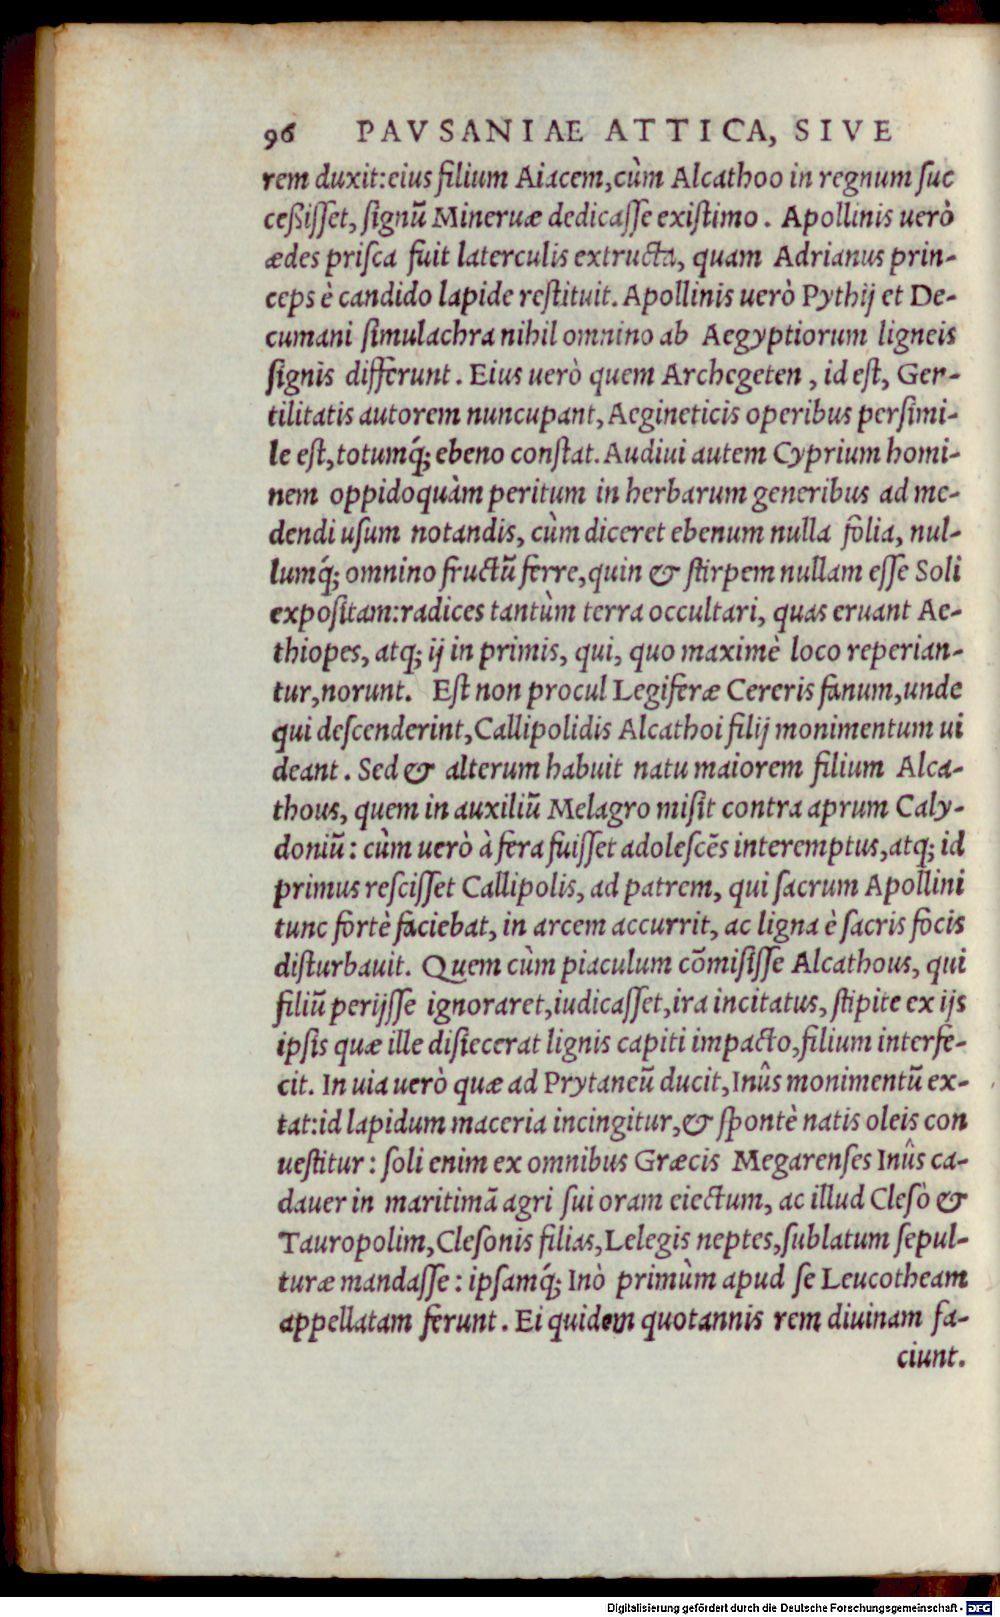 96 PAVSANIAE ATTICA, SIVE
rem duxit: eius filium Aiacem, cùm Alcathoo in regnum ſuc
ceßiſſet, ſignũ Mineruæ dedicaſſe exiſtimo. Apollinis uerò
ædes priſca fuit laterculis extructa, quam Adrianus prin-
ceps è candido lapide reſtituit. Apollinis uerò Pythij et De-
cumani ſimulachra nihil omnino ab Aegyptiorum ligneis
ſignis differunt. Eius uerò quem Archegeten, id eſt, Gen-
tilitatis autorem nuncupant, Aegineticis operibus perſimi-
le eſt, totumq́; ebeno conſtat. Audiui autem Cyprium homi-
nem oppidoquàm peritum in herbarum generibus ad me-
dendi uſum notandis, cùm diceret ebenum nulla folia, nul-
lumq́; omnino fructũ ferre, quin & ſtirpem nullam eſſe Soli
expoſitam: radices tantùm terra occultari, quas eruant Ae-
thiopes, atq; ij in primis, qui, quo maximè loco reperian-
tur, norunt. Eſt non procul Legiferæ Cereris fanum, unde
qui deſcenderint, Callipolidis Alcathoi filij monimentum ui
deant. Sed & alterum habuit natu maiorem filium Alca-
thous, quem in auxiliũ Melagro miſit contra aprum Caly-
doniũ: cùm uerò à fera fuiſſet adoleſcẽs interemptus, atq; id
primus reſciſſet Callipolis, ad patrem, qui ſacrum Apollini
tunc fortè faciebat, in arcem accurrit, ac ligna è ſacris focis
diſturbauit. Quem cùm piaculum cõmiſiſſe Alcathous, qui
filiũ perijſſe ignoraret, iudicaſſet, ira incitatus, ſtipite ex ijs
ipſis quæ ille diſiecerat lignis capiti impacto, filium interfe-
cit. In uia uerò quæ ad Prytaneũ ducit, Inûs monimentũ ex-
tat: id lapidum maceria incingitur, & ſpontè natis oleis con
ueſtitur: ſoli enim ex omnibus Græcis Megarenſes Inûs ca-
dauer in maritimã agri ſui oram eiectum, ac illud Cleſò &
Tauropolim, Cleſonis filias, Lelegis neptes, ſublatum ſepul-
turæ mandaſſe: ipſamq́; Inò primùm apud ſe Leucotheam
appellatam ferunt. Ei quidem quotannis rem diuinam fa-
ciunt.
Digitalisierung gefördert durch die Deutsche Forschungsgemeinschaft - DFG